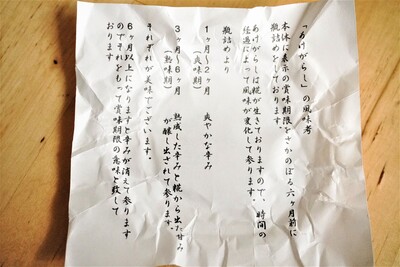 「あけがらし」の風味考
本体に表示の賞味期限をさかのぼる六ヶ月前に
瓶詰めをしております。
あけがらしは糀が生きておりますので、時間の
経過によって風味が変化して参ります。
瓶詰めより
1ヶ月〜2ヶ月　爽やかな辛み
（爽味期）
3ヶ月〜6ヶ月　熟成した辛みと糀から出た甘み
（熟味期）　が醸し出されて参ります。
それぞれが美味でございます。
6ヶ月以上になりますと辛みが消えて参ります
のでそれをもって賞味期限の意味と致して
おります